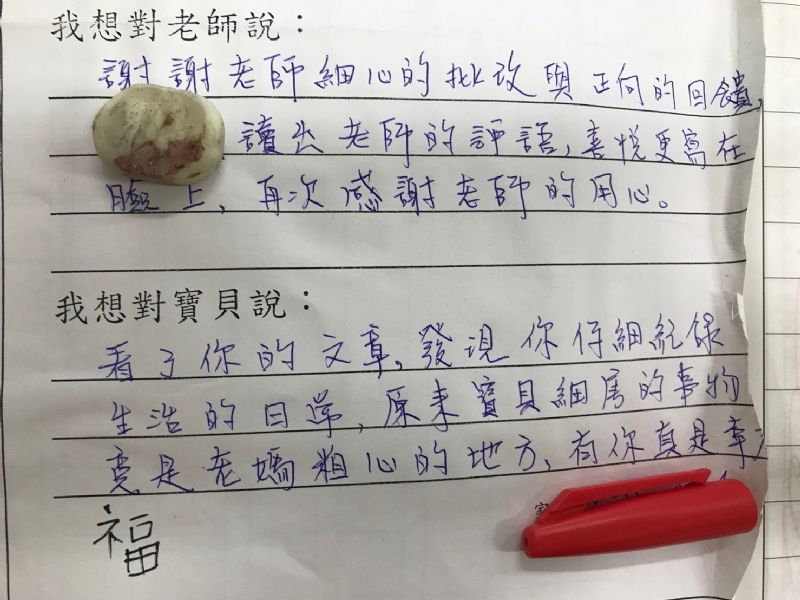 我想對老師說：
謝謝老師細心的批改與正向的回饋，
讀出老師的評語，喜悅更寫在
臉上，再次感謝老師的用心。
我想對寶貝說：
看了你的文章，發現你仔細紀錄
生活的日常，原來寶貝細膩的事物
竟是老媽粗心的地方，有你真是幸
福
家